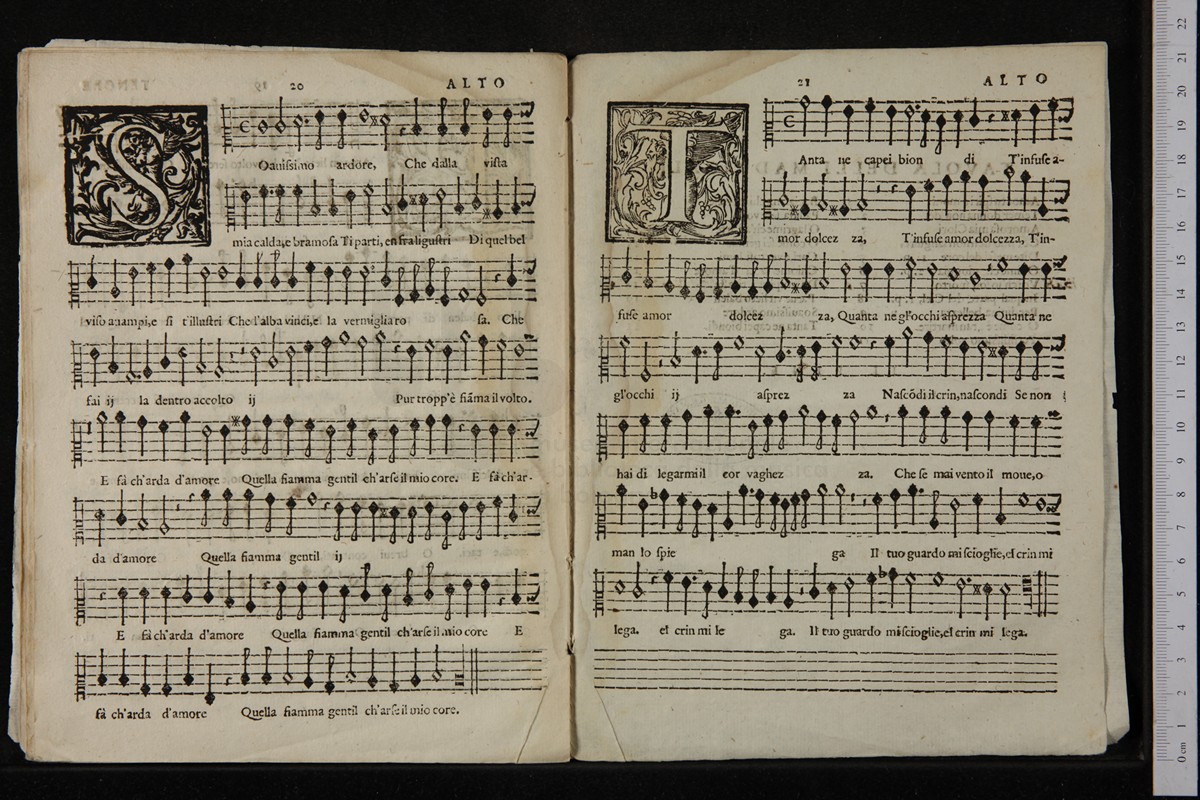 20 ALTO
S
Oauissimo ardore, Che dalla vista
mia calda,e bramosa Ti parti, en fra ligustri Di quel bel
viso auampi,e si t'illustri Che l'alba vinci,e la vermiglia ro sa. Che
fai ij la dentro accolto ij Pur tropp'è fiāma il volto.
E fà ch'arda d'amore Quella fiamma gentil ch'arse il mio core. E fà ch'ar-
da d'amore Quella fiamma gentil ij
E fà ch'arda d'amore Quella fiamma gentil ch'arse il mio core E
fà ch'arda d'amore Quella fiamma gentil ch'arse il mio core.
21 ALTO
T
Anta ne capei bion di T'infuse a-
mor dolcez za, T'infuse amor dolcezza, T'in-
fuse amor dolcez za, Quanta ne gl'occhi asprezza Quanta ne
gl'occhi ij asprez za Nascōdi il crin,nascondi Se non
hai di legarmi il cor vaghez za. Che se mai vento il moue,o
man lo spie ga Il tuo guardo mi scioglie,el crin mi
lega. el crin mi le ga. Il tuo guardo mi scioglie,el crin mi lega.
0 cm 1 2 3 4 5 6 7 8 9 10 11 12 13 14 15 16 17 18 19 20 21 22